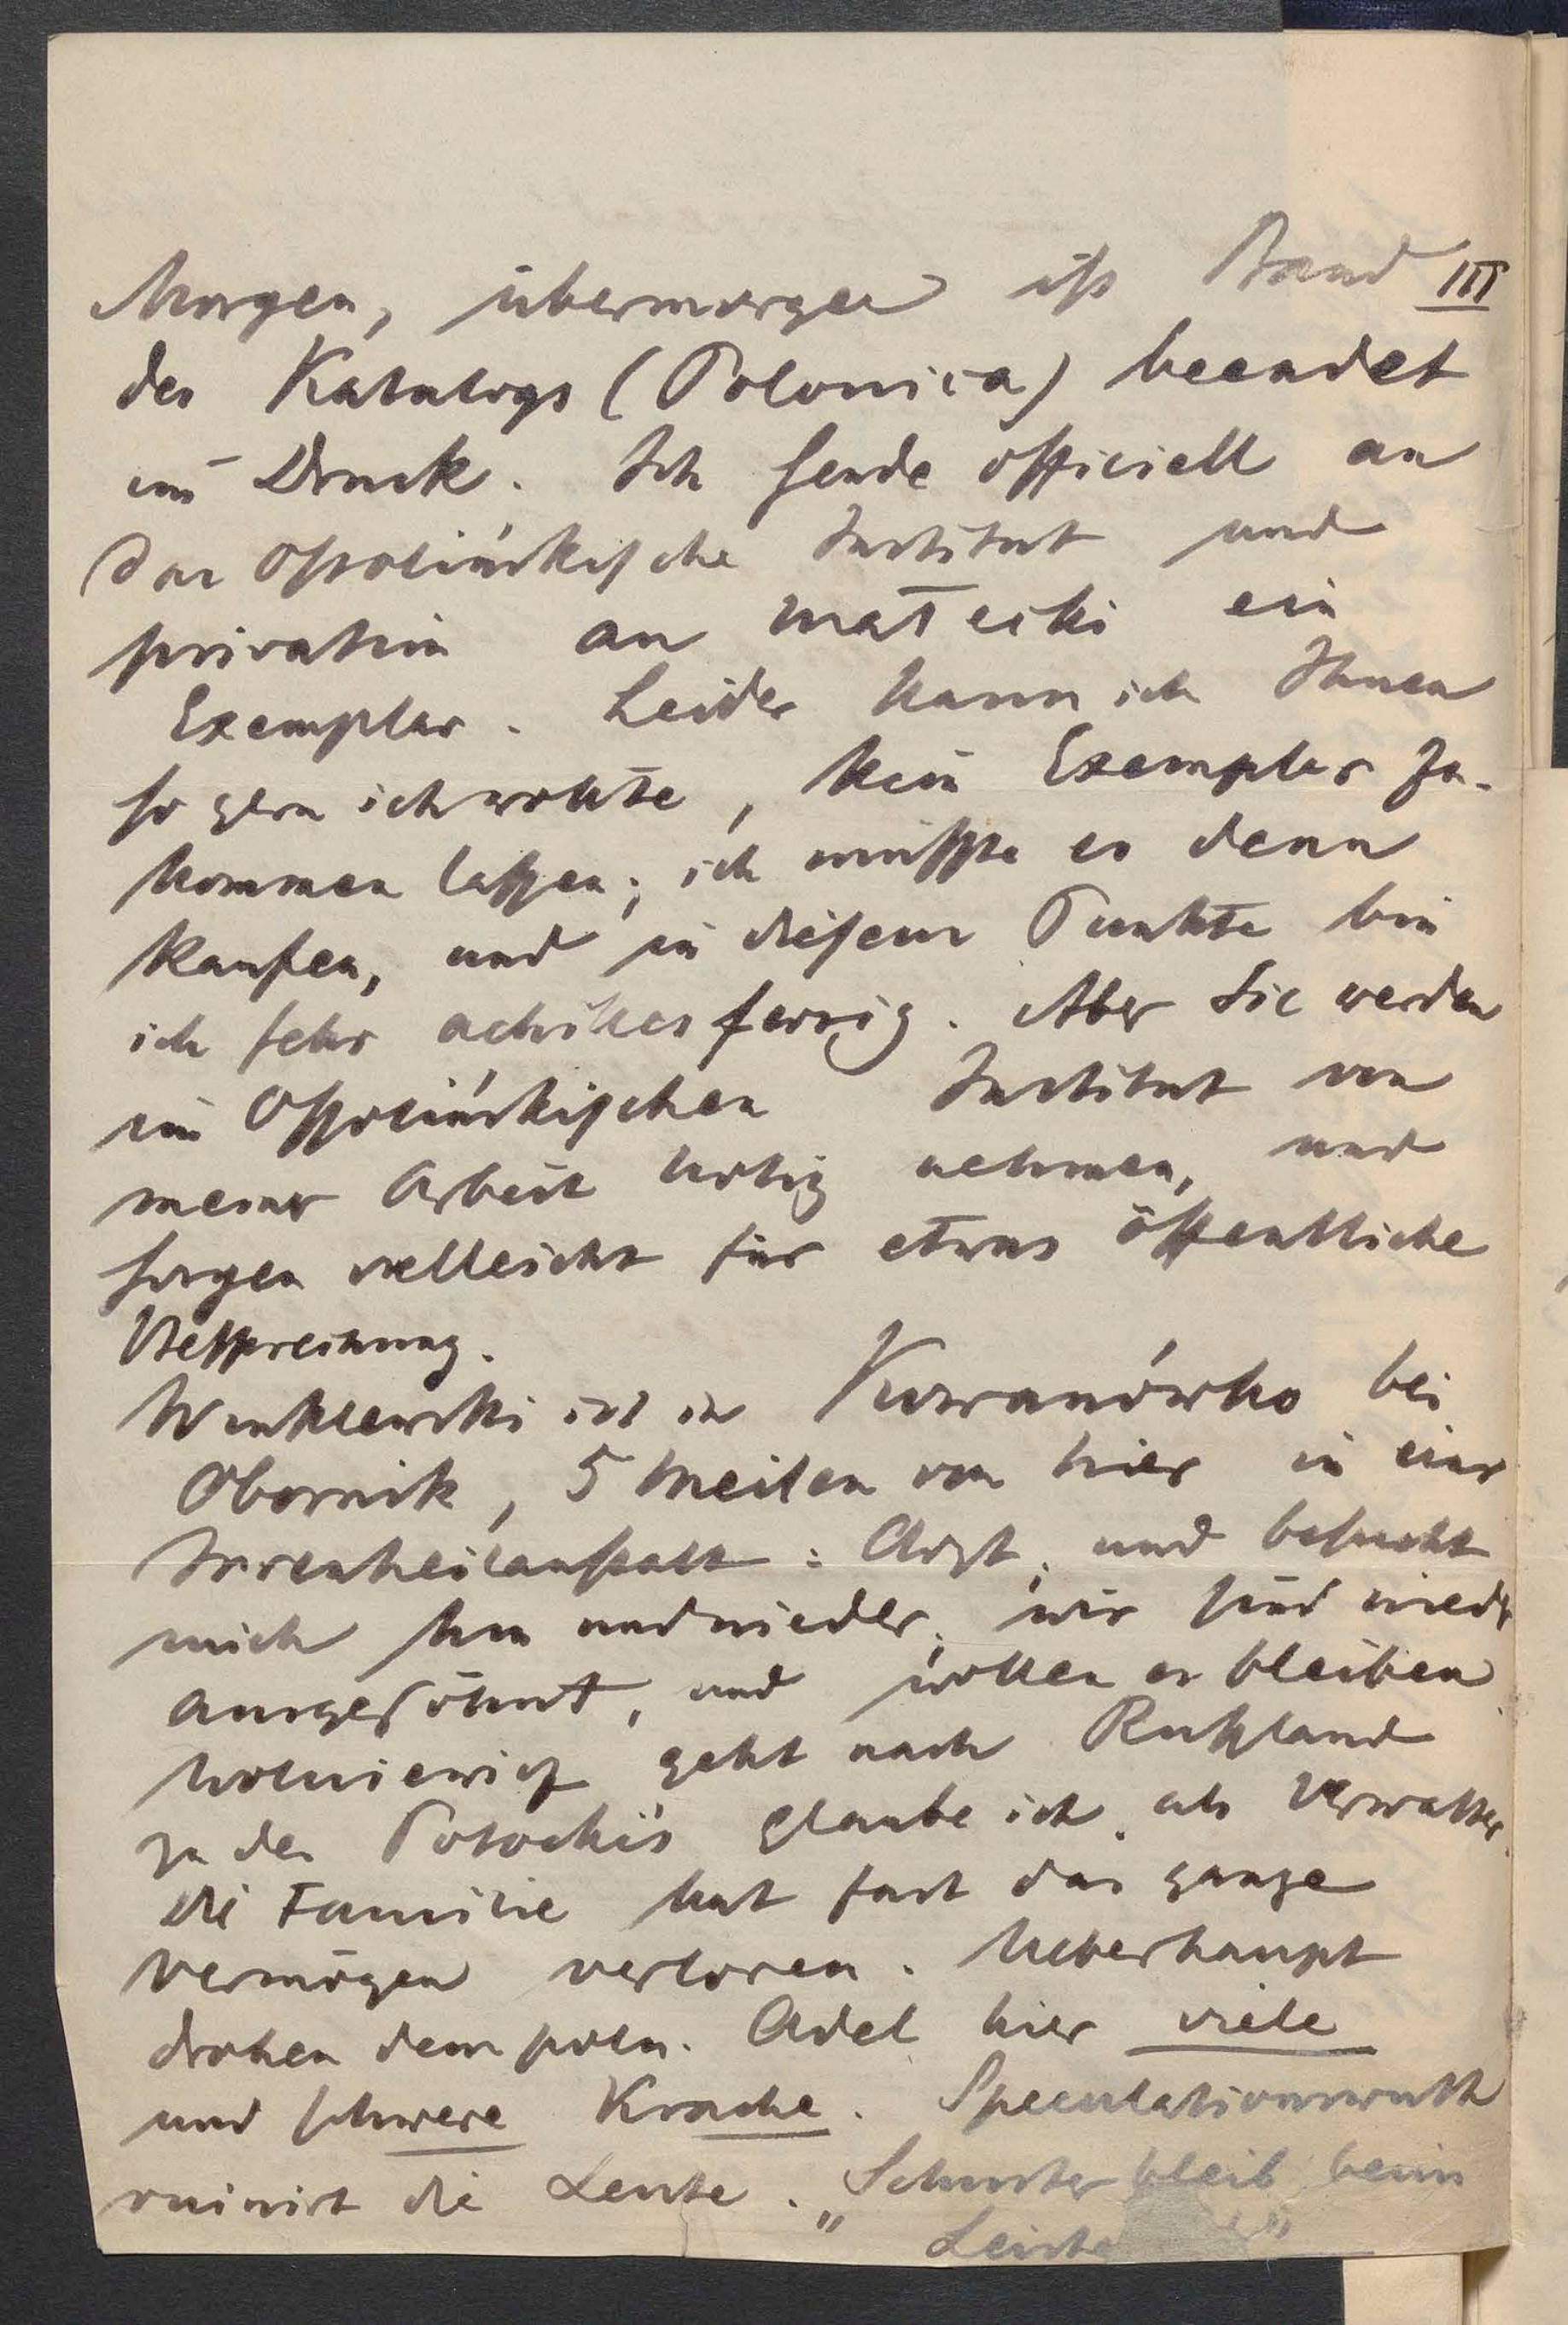 Morgen, übermorgen ist Band III
des Katalogs (Polonica) beendet
im Druck. Ich sende officiell an
das Ossolińskische Institut und
privatim an Małecki ein
Exemplar. Leider kann ich Ihnen
so gern ich wollte, kein Exemplar zu-
kommen lassen; ich müsste es denn
kaufen, und in diesem Punkte bin
ich sehr achillesfersig. Aber Sie werden
im Ossolińskischen Institut von
meiner Arbeit Notiz nehmen, und
sorgen vielleicht für etwas öffentliche
Besprechung.
ist in Kowanówko bei
Obornik, 5 Meilen von hier in einer
Irrenheilanstalt: Arzt, und besucht
mich hin und wieder; wir sind wieder
ausgesöhnt, und wollen es bleiben
Wolniewicz geht nach Rußland
zu den Potocki's glaube ich, als Verwalter.
Die Familie hat fast das ganze
Vermögen verloren. Ueberhaupt
drohen dem poln. Adel hier viele
und schwere Krache. Speculationswuth
ruinirt die Leute. „Schuster bleib beim
Leisten"